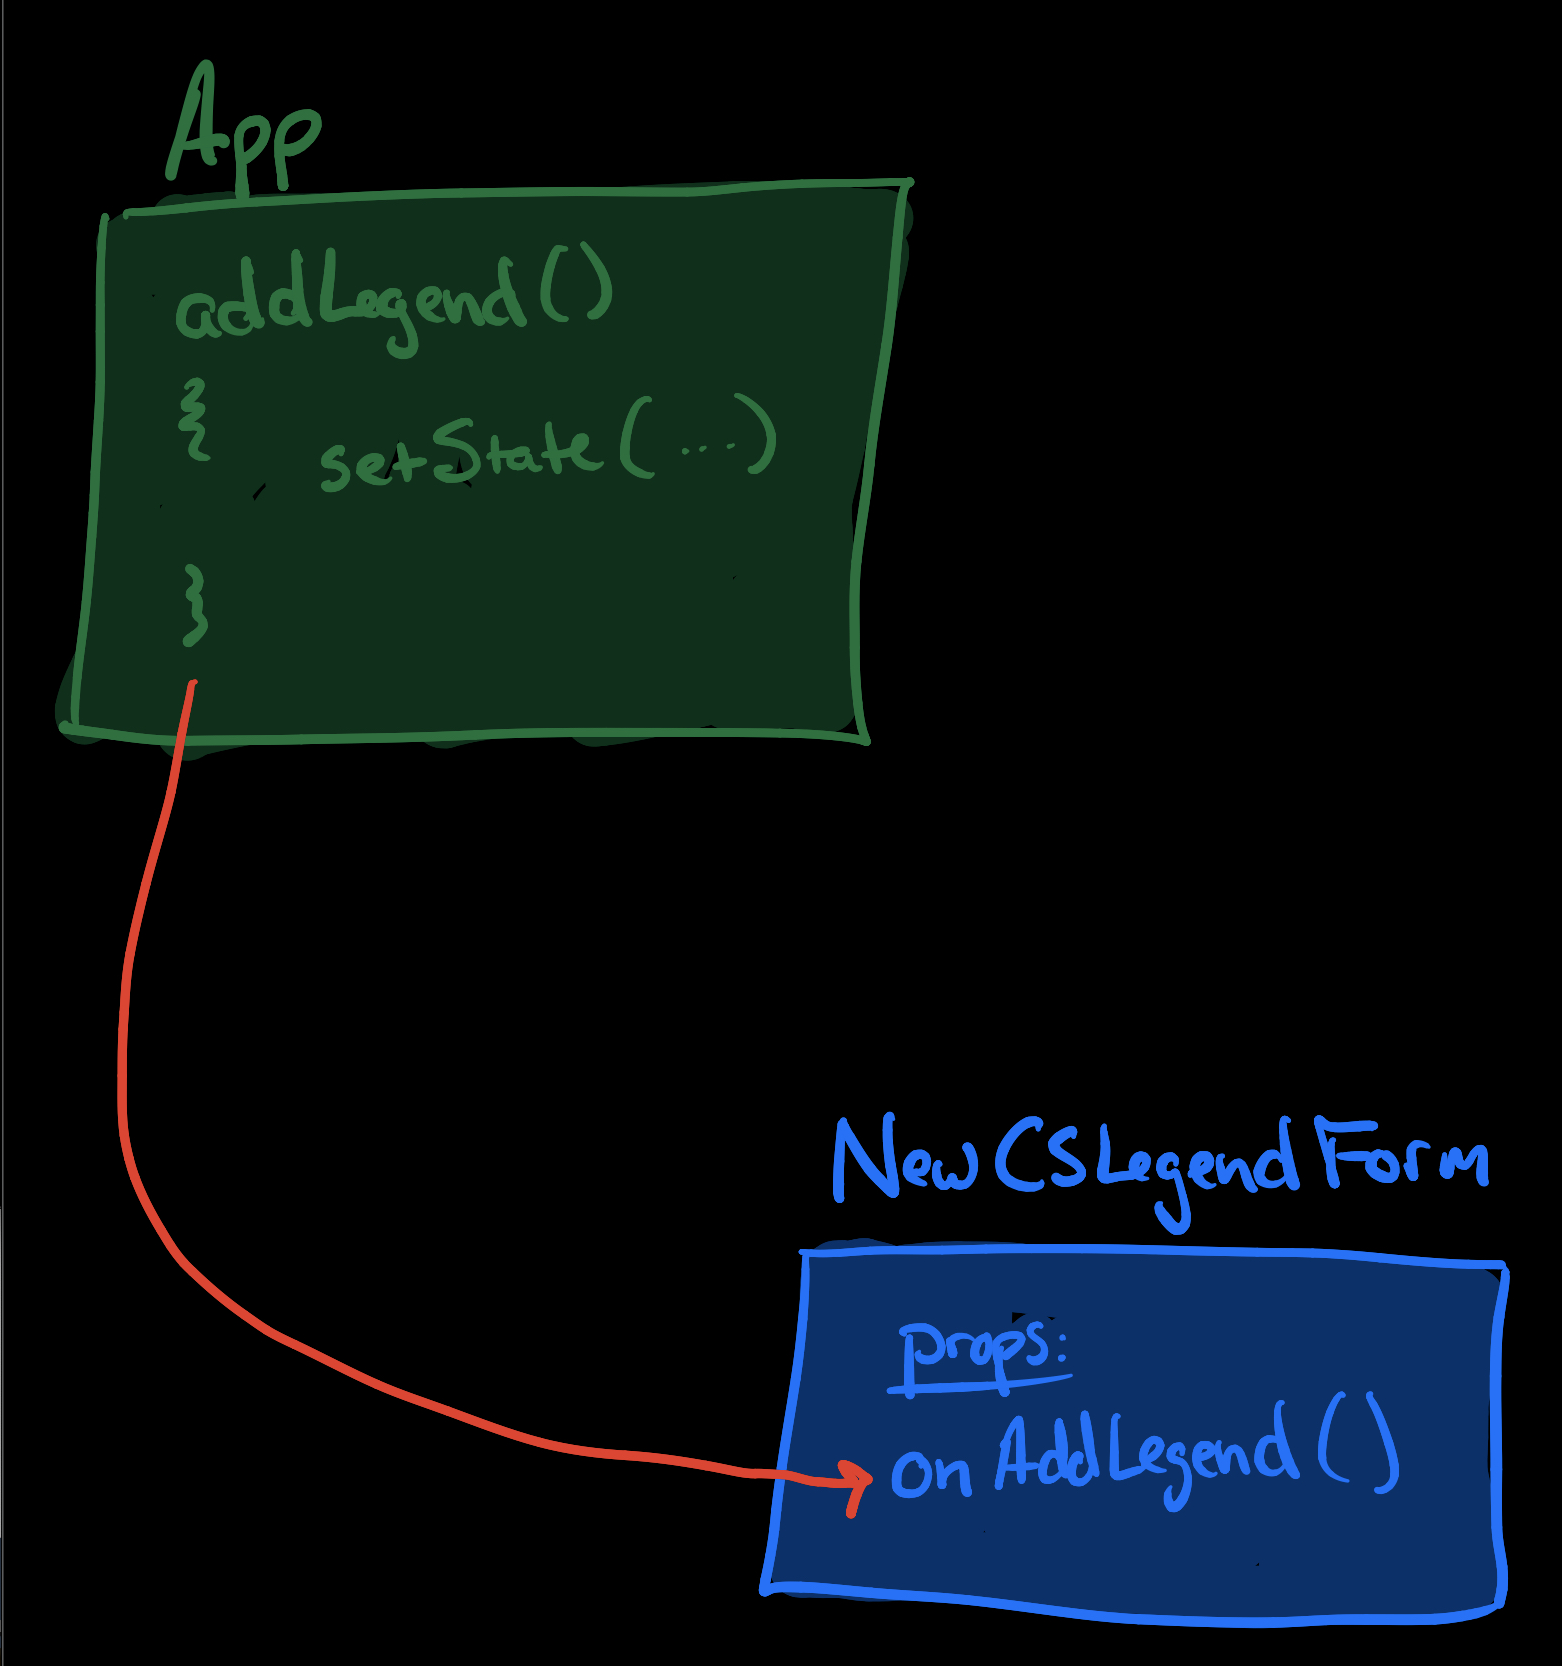 App
addLegend()
{
setState(...)
}
NewCSLegendForm
props:
onAddLegend()